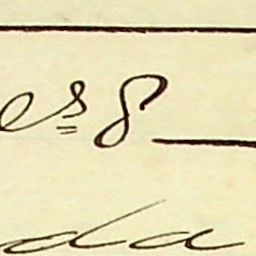 es 8
da